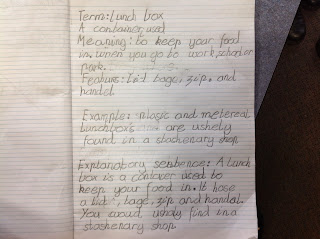 Term: Lunch box
A container used
Meaning: to keep your food
in. when you go to work, school or
park.
Feature: Lid bage, zip, and
handel
Example: plasic and metereal
lunchboxs are ushely
found in a stashenary shop.
Explanatory sentence: A lunch
box is a contaver used to
keep your food in. It hase
a lid, bage, zip and handel.
You woud, ushaly find in a
stashenary shop.